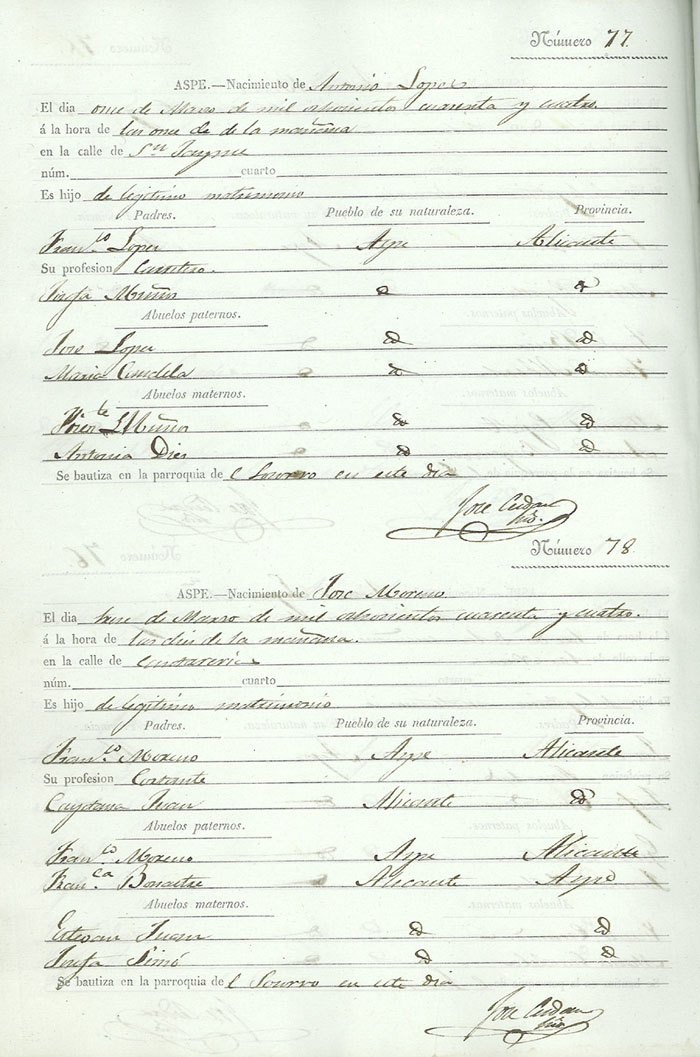 Número 77.
ASPE.—Nacimiento de Antonio Lopez
El dia once de Marzo de mil ochocientos cuarenta y cuatro.
á la hora de las once de de la mañana
en la calle de Sn Jayme
núm. cuarto
Es hijo de legitimo matrimonio
Padres. Pueblo de su naturaleza. Provincia.
Fran.co Lopez Aspe Alicante
Su profesion
Josefa Muñoz
Abuelos paternos.
Jose Lopez
Maria Candela
Abuelos maternos.
Vicente Muñoz
Antonia Diez
Se bautiza en la parroquia del Socorro en este dia
Jose
Número 78.
ASPE.—Nacimiento de Jose Moreno
El dia trece de Marzo de mil ochocientos cuarenta y cuatro.
á la hora de las diez de la mañana.
en la calle de
núm. cuarto
Es hijo de legitimo matrimonio
Padres. Pueblo de su naturaleza. Provincia.
Fran.co Moreno Aspe Alicante
Su profesion Cortante
Cayetana Juan Alicante
Abuelos paternos.
Fran.co Moreno Aspe Alicante
Fran.ca Alicante Aspe
Abuelos maternos.
Estevan Juan
Josefa Simó
Se bautiza en la parroquia del Socorro en este dia
Jose